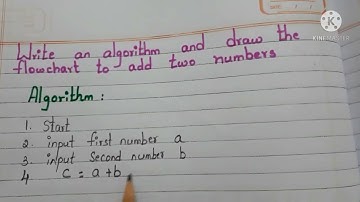 KINEMASTER
Write an algorithm and draw the
flowchart to add two numbers
Algorithm :
1. Start
2. input first number a
3. input Second number b
4 c = a+b